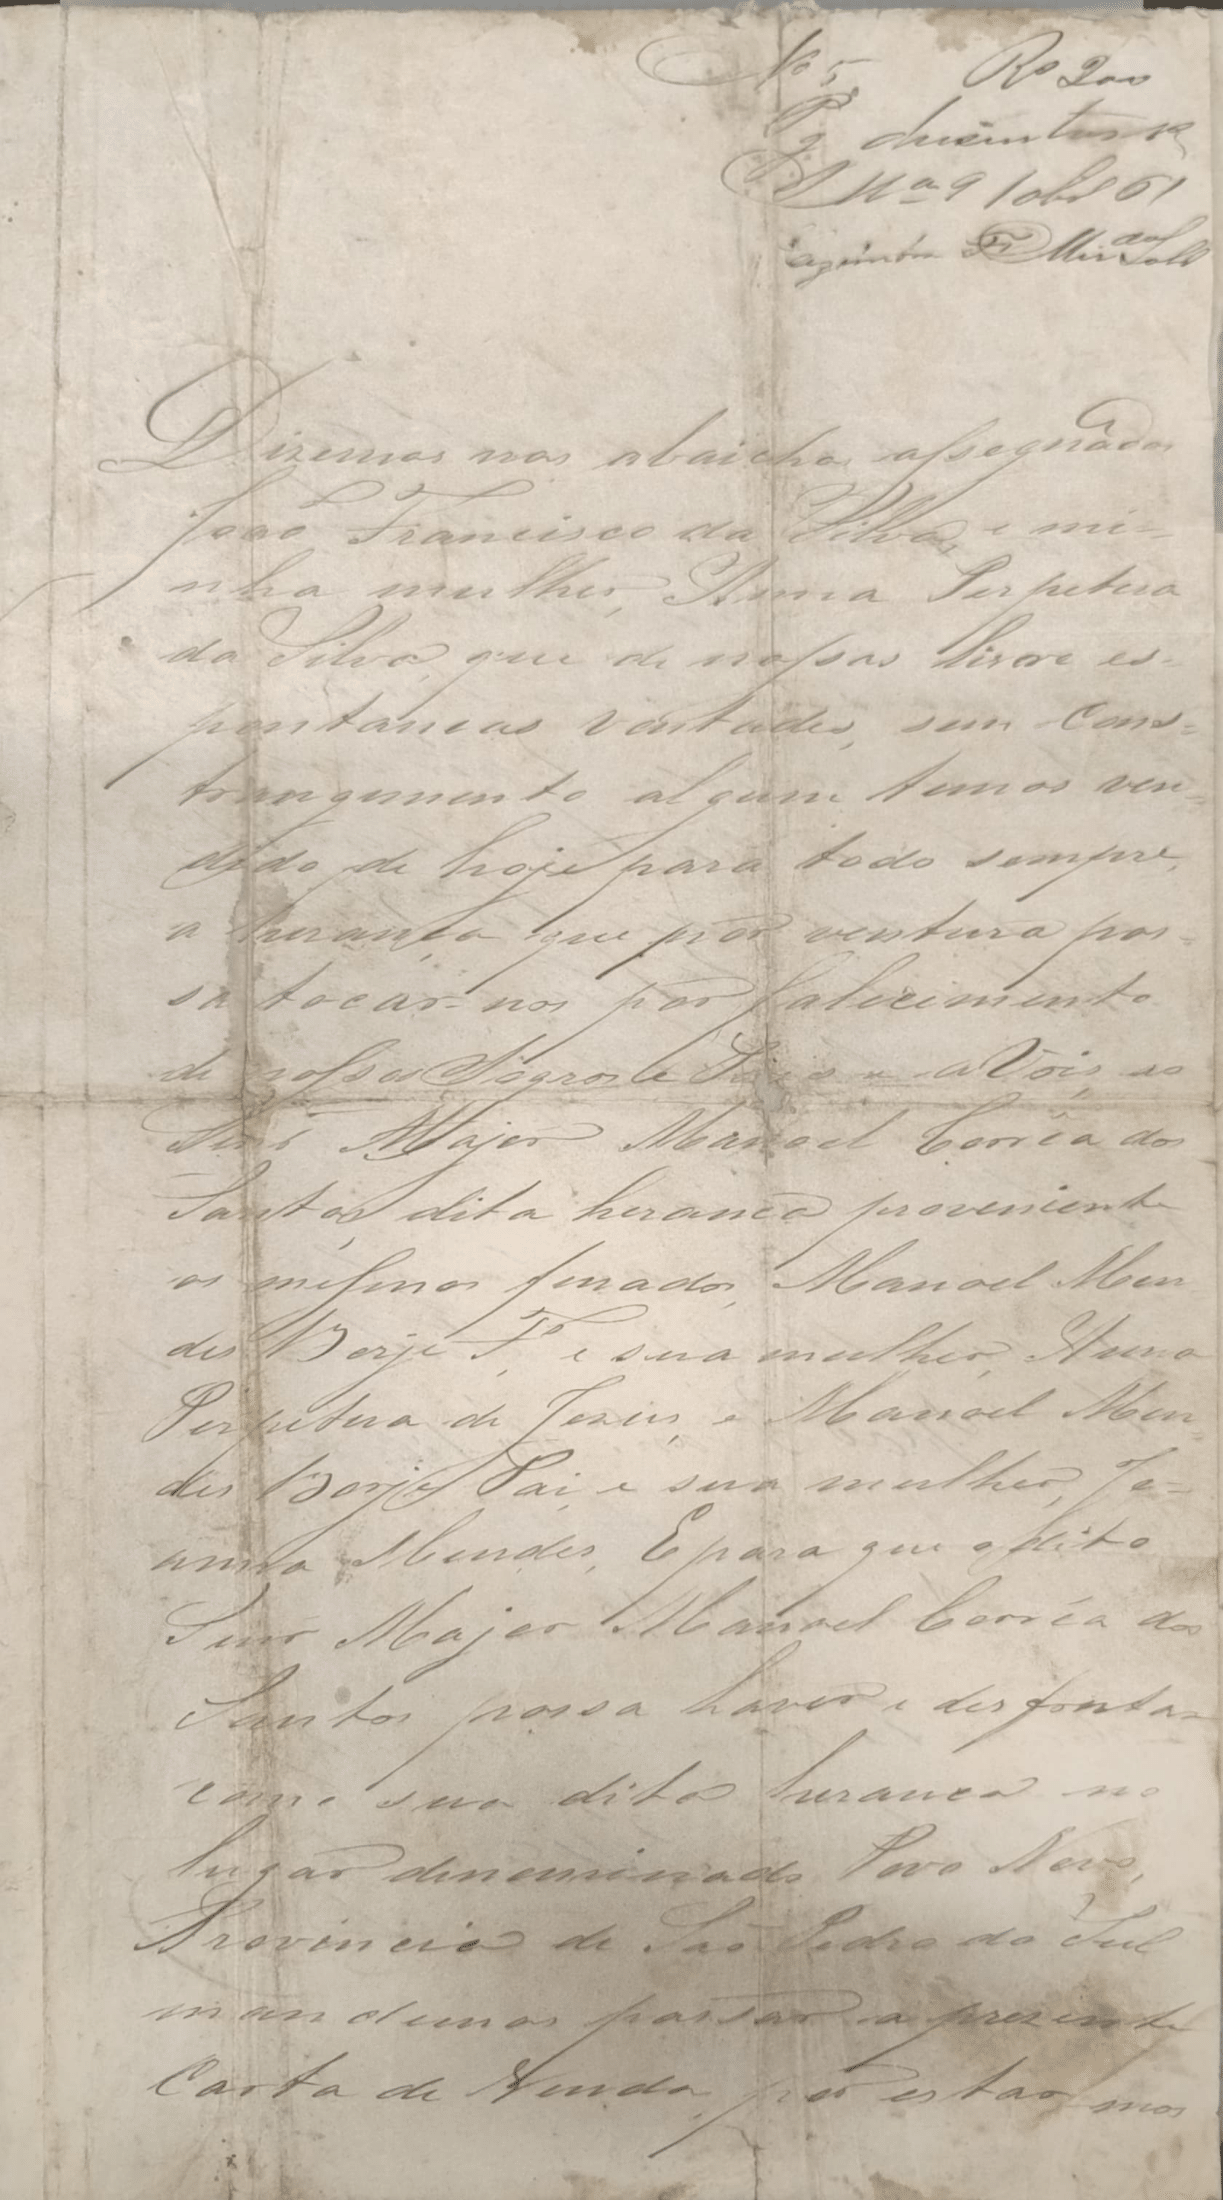 Nº 5 Rs 200
Pg duzentos rs
9 1861
Dizemos nos abaicho assegnados
João Francisco da Silva, e mi-
nha mulher, Anna Perpetua
da Silva, que de nossas livre es-
pontaneas vontades, sem cons-
trangemento algum temos ven-
dido de hoje para todo sempre,
a herança que por ventura pos-
sa tocar-nos por falecimento
de nossos Sogros e Pais e aVóis, ao
Snr Major Manoel Corrêa dos
Santos, dita herança proveniente
os mesmos finados, Manoel Men
des Borje Fº, e sua mulher, Anna
Perpetua de Jezus, e Manoel Men-
des Borje Pai, e sua mulher, Jo-
anna Mendes, E para que o dito
Snr Major Manoel Corrêa dos
Santos possa haver e desfrutar
como sua dita herança no
lugar denominado Povo Novo,
Provincia de São Pedro do Sul
mandemos passar a prezente
Carta de Venda, por estarmos